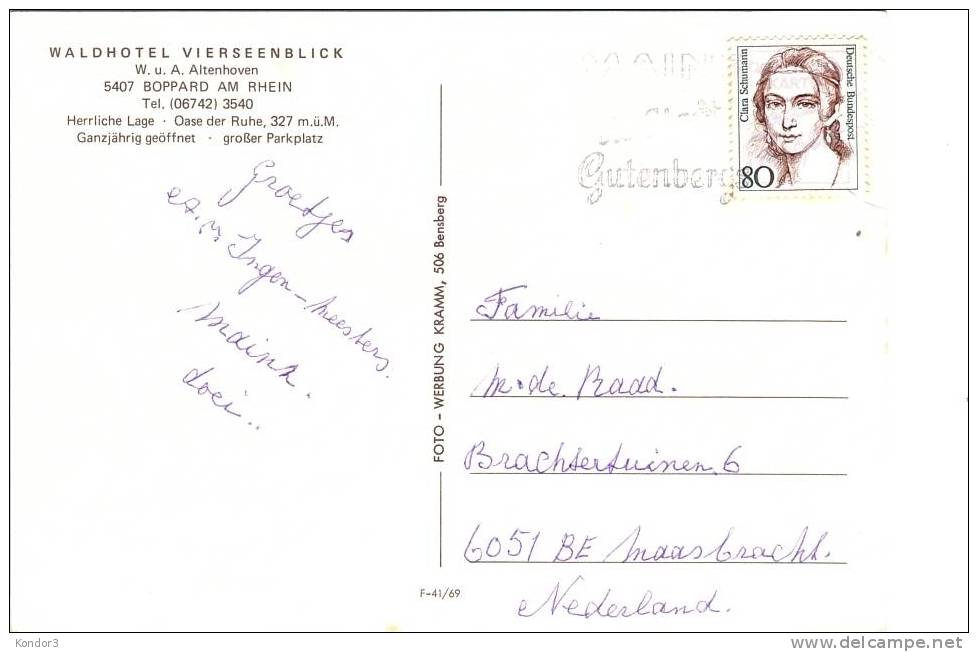 WALDHOTEL VIERSEENBLICK
W. u. A. Altenhoven
5407 BOPPARD AM RHEIN
Tel. (06742) 3540
Herrliche Lage · Oase der Ruhe, 327 m.ü.M.
Ganzjährig geöffnet · großer Parkplatz
Groetjes
Ingen - Meesters.
doei..
FOTO - WERBUNG KRAMM, 506 Bensberg
F-41/69
MAIN
Gutenberg
Clara Schumann
Deutsche Bundespost
80
Familie
M. de Raad.
Brachtertuinen 6
6051 BE Maasbracht.
Nederland.
Kondor3
www.delcampe.net